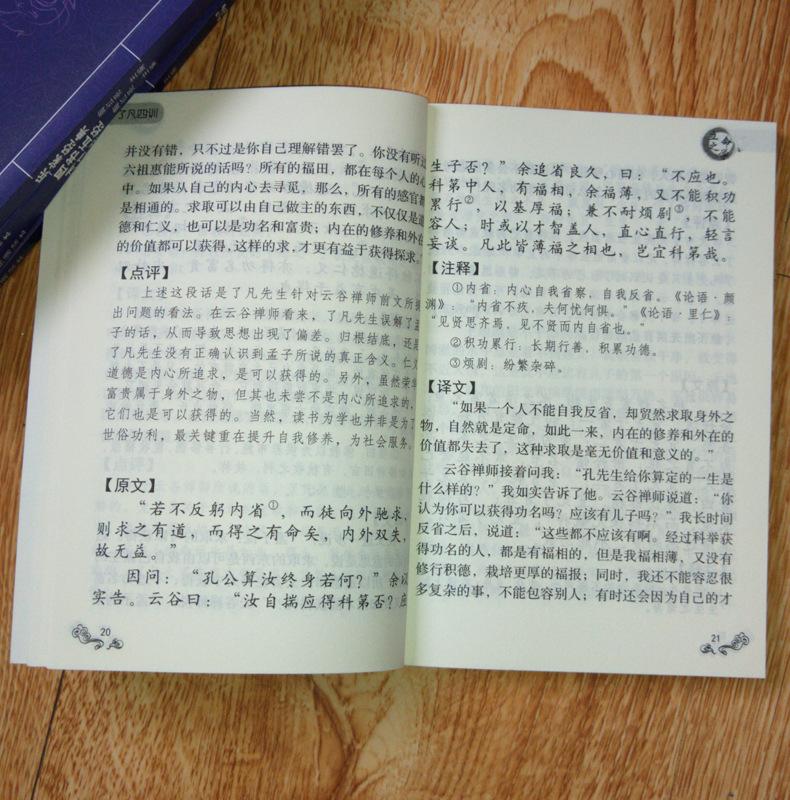 了凡四训
并没有错，只不过是你自己理解错罢了。你没有听过
六祖惠能所说的话吗？所有的福田，都在每个人的心
中。如果从自己的内心去寻觅，那么，所有的感官都
是相通的。求取可以由自己做主的东西，不仅仅是道
德和仁义，也可以是功名和富贵；内在的修养和外在
的价值都可以获得，这样的求，才更有益于获得探求。
【点评】
上述这段话是了凡先生针对云谷禅师前文所提
出问题的看法。在云谷禅师看来，了凡先生误解了孟
子的话，从而导致思想出现了偏差。归根结底，还是
了凡先生没有正确认识到孟子所说的真正含义。仁义
道德是内心所追求，是可以获得的。另外，虽然荣华
富贵属于身外之物，但其也未尝不是内心所追求的，
它们也是可以获得的。当然，读书为学也并非是为了
世俗功利，最关键重在提升自我修养，为社会服务。
【原文】
“若不反躬内省①，而徒向外驰求，
则求之有道，而得之有命矣，内外双失，
故无益。”
因问：“孔公算汝终身若何？”余以
实告。云谷曰：“汝自揣应得科第否？应
20
生子否？”余追省良久，曰：“不应也。
科第中人，有福相，余福薄，又不能积功
累行②，以基厚福；兼不耐烦剧③，不能
容人；时或以才智盖人，直心直行，轻言
妄谈。凡此皆薄福之相也，岂宜科第哉。
【注释】
①内省：内心自我省察，自我反省。《论语·颜
渊》：“内省不疚，夫何忧何惧。”《论语·里仁》：
“见贤思齐焉，见不贤而内自省也。”
②积功累行：长期行善，积累功德。
③烦剧：纷繁杂碎。
【译文】
“如果一个人不能自我反省，却贸然求取身外之
物，自然就是定命，如此一来，内在的修养和外在的
价值都失去了，这种求取是毫无价值和意义的。”
云谷禅师接着问我：“孔先生给你算定的一生是
什么样的？”我如实告诉了他。云谷禅师说道：“你
认为你可以获得功名吗？应该有儿子吗？”我长时间
反省之后，说道：“这些都不应该有啊。经过科举获
得功名的人，都是有福相的，但是我福相薄，又没有
修行积德，栽培更厚的福报；同时，我还不能容忍很
多复杂的事，不能包容别人；有时还会因为自己的才
21